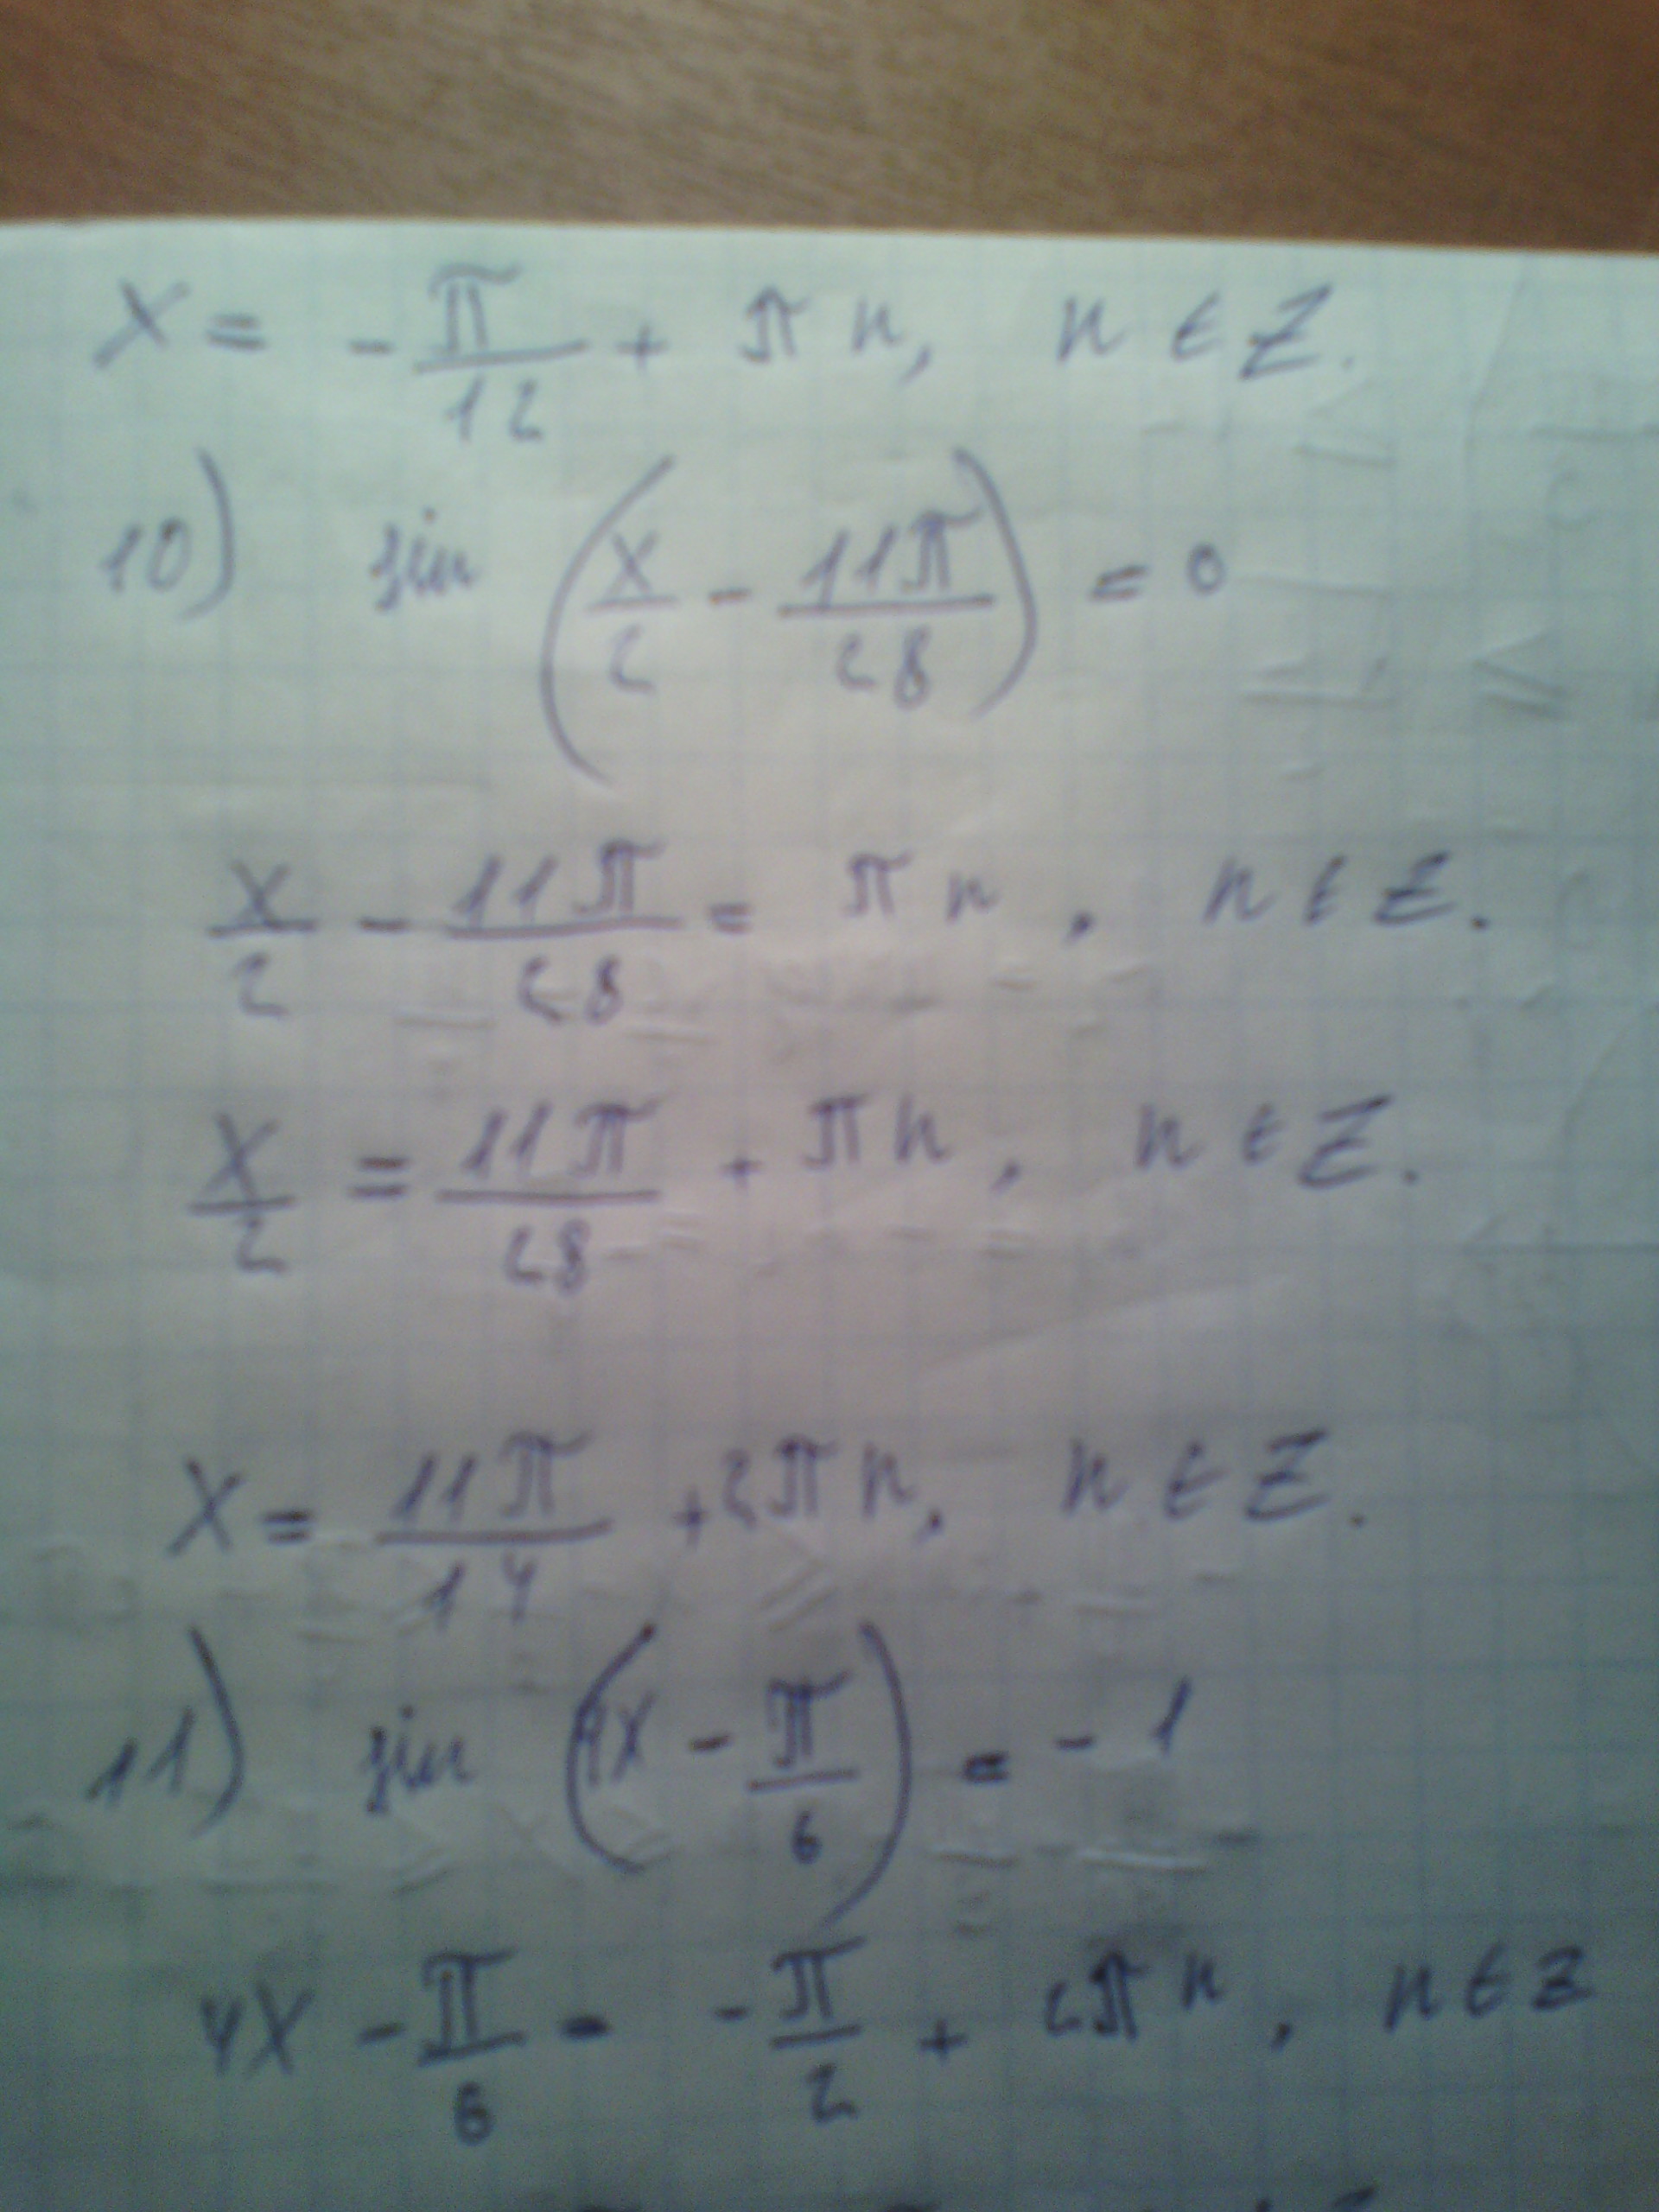 x = -π/12 + πn, n ∈ Z.
10) sin (x/2 - 11π/28) = 0
x/2 - 11π/28 = πn, n ∈ Z.
x/2 = 11π/28 + πn, n ∈ Z.
x = 11π/14 + 2πn, n ∈ Z.
11) sin (4x - π/6) = -1
4x - π/6 = -π/2 + 2πn, n ∈ Z